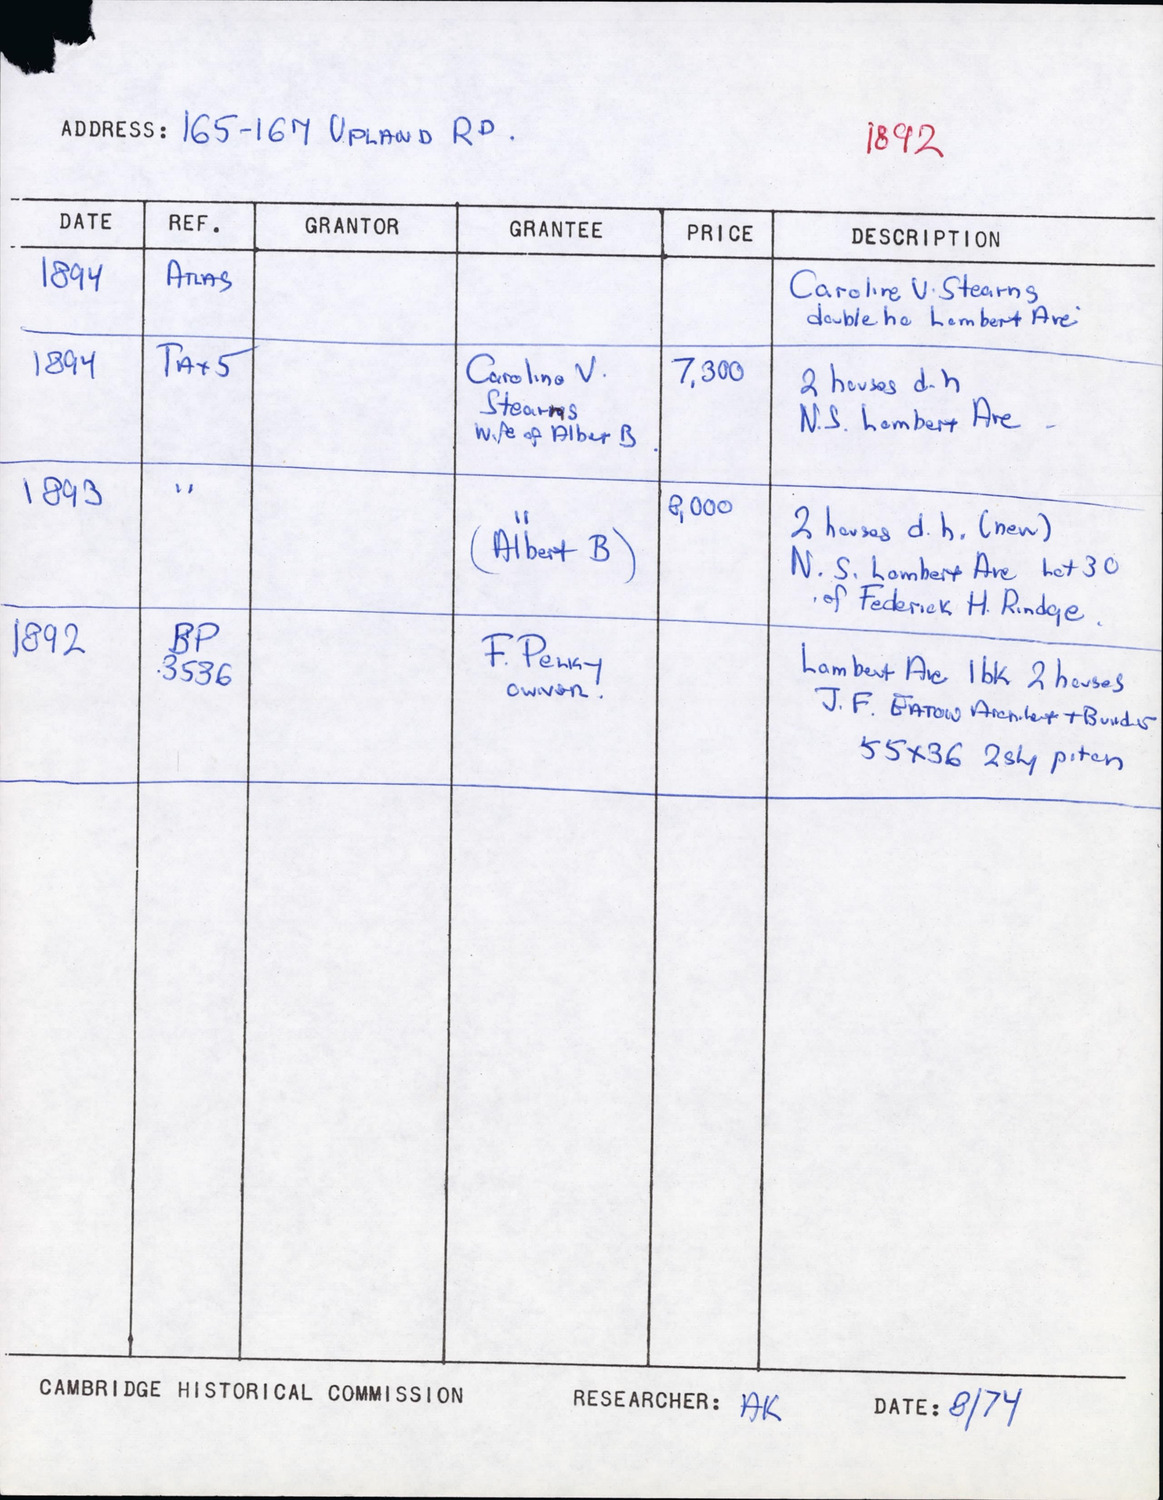 ADDRESS: 165-167 UPLAND RD.
1892
DATE REF. GRANTOR GRANTEE PRICE DESCRIPTION
1894 ATLAS Caroline V. Stearns
double ho Lambert Ave
1894 TAXS Caroline V. 7,300 2 houses d-h
Stearns N.S. Lambert Ave -
wife of Alber B.
1893 " " 8,000 2 houses d.h. (new)
(Albert B) N.S. Lambert Ave Lot 30
of Federick H. Rindge.
1892 BP F. Lambert Ave 1bk 2 houses
3536 owner. J.F. EATON Architect + Builder
55x36 2sty pitch
CAMBRIDGE HISTORICAL COMMISSION RESEARCHER: AK DATE: 8/74